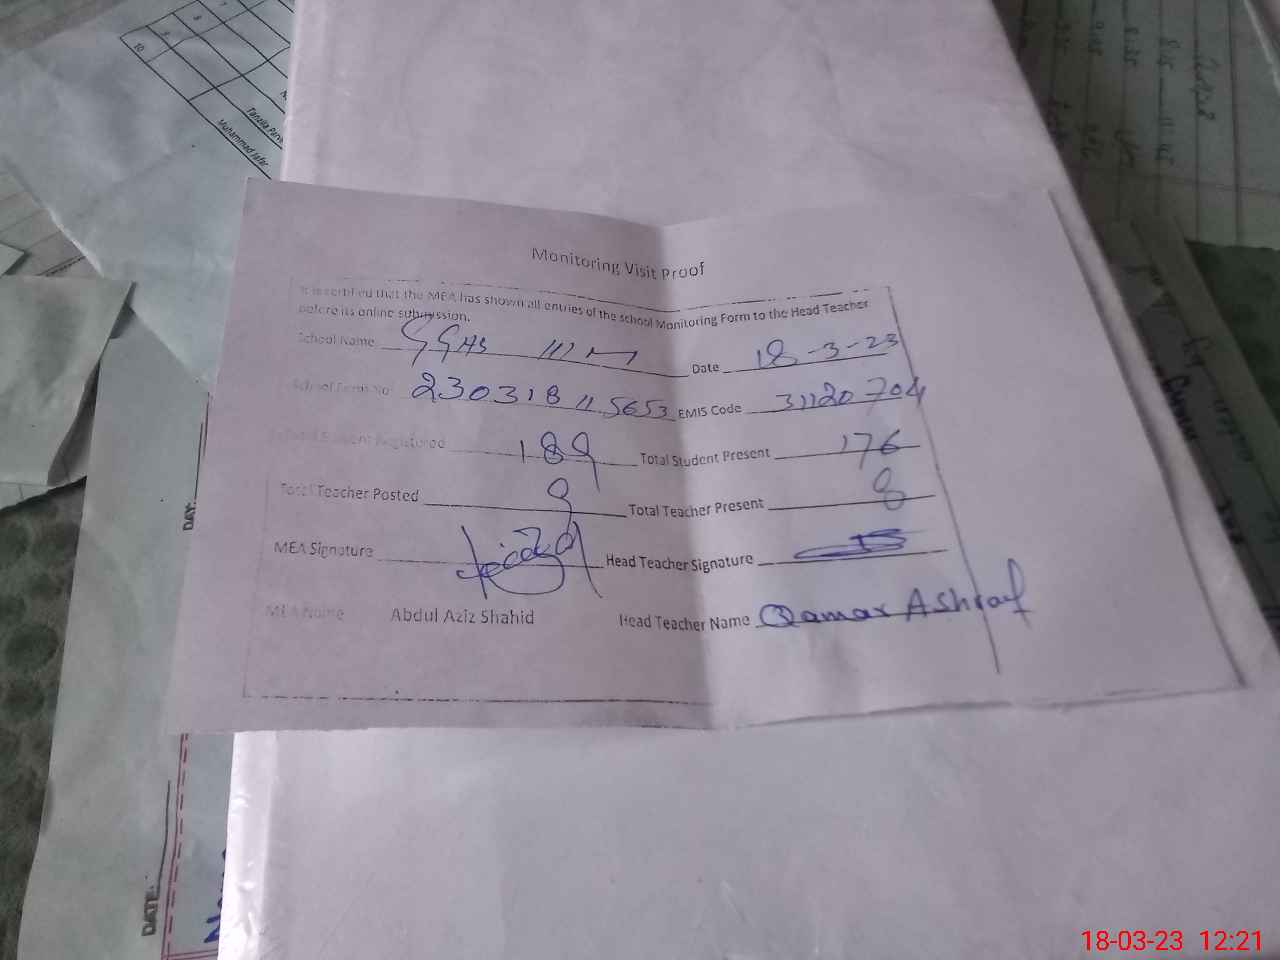 Monitoring Visit Proof
It is certified that the MEA has shown all entries of the school Monitoring Form to the Head Teacher
before its online submission.
School Name GGHS 111 M Date 18-3-23
School Form No 230318115653 EMIS Code 31120704
Total Student Registered 189 Total Student Present 176
Total Teacher Posted 9 Total Teacher Present 8
MEA Signature Head Teacher Signature
MEA Name Abdul Aziz Shahid Head Teacher Name Qamar Ashraf
7
8
9
10
Tanzila Parv
Muhammad Jafar
DAY:
DATE:
18-03-23 12:21